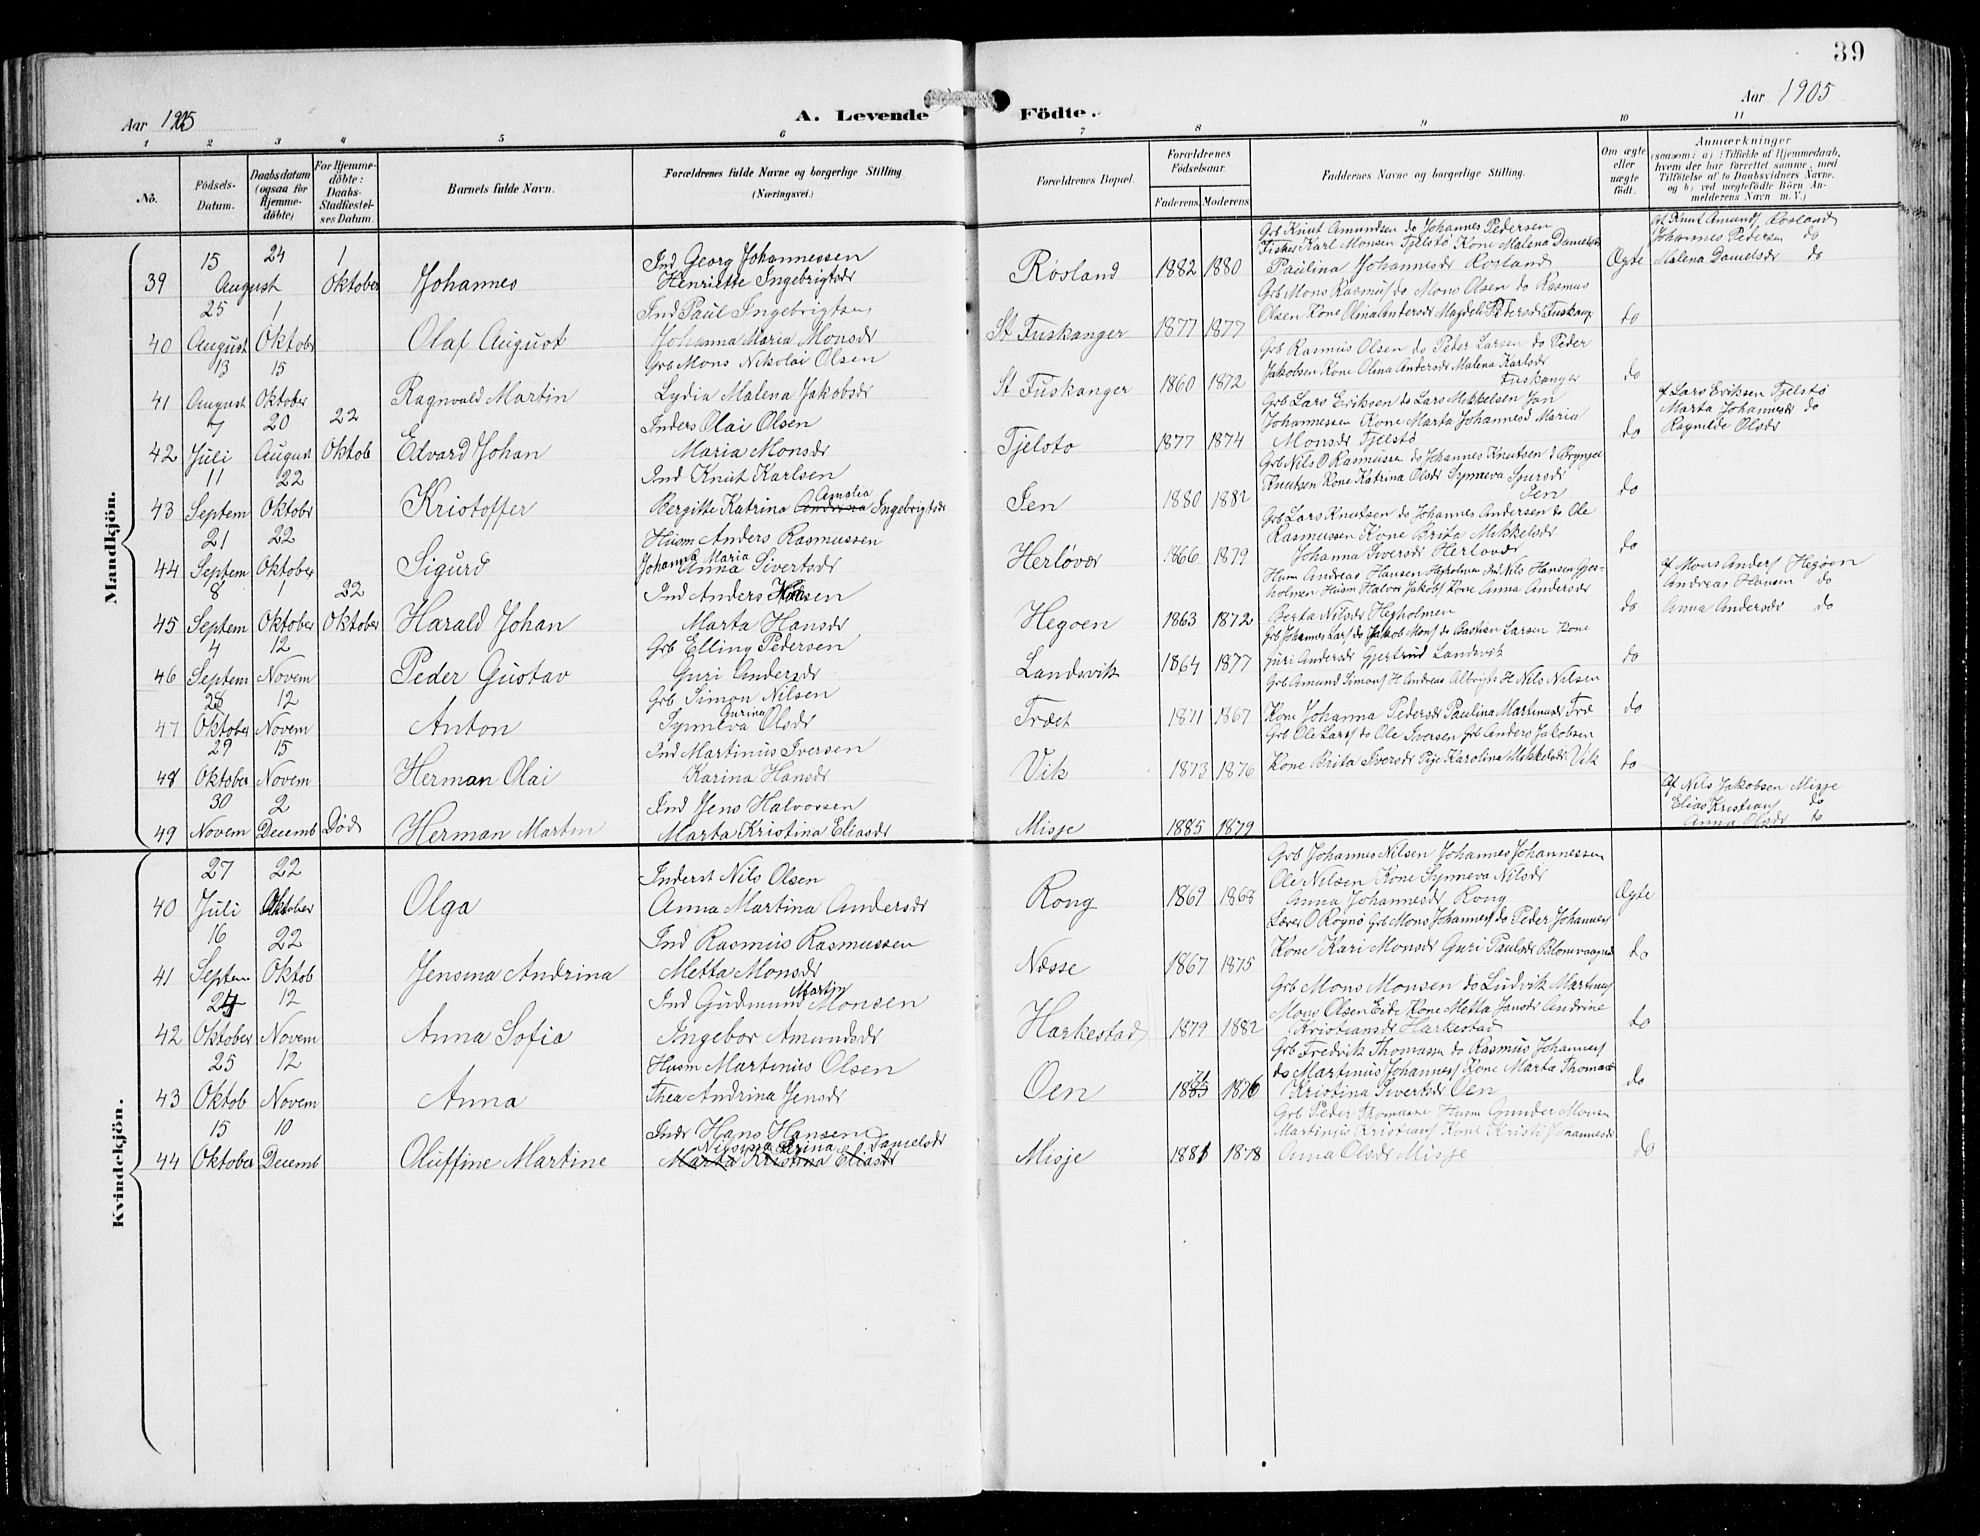 39
Aar 1905
A. Levende Födte.
Aar 1905
1 2 3 4 5 6 7 8 9 10 11
No.
Födsels-Datum.
Daabsdatum (ogsaa for Hjemme-döbte)
For Hjemme-döbte: Daabs-Stadfæstel-ses Datum.
Barnets fulde Navn.
Forældrenes fulde Navne og borgerlige Stilling (Næringsvei.)
Forældrenes Bopæl.
Forældrenes Födselsaar.
Faderens Moderens
Faddernes Navne og borgerlige Stilling.
Om ægte eller uægte födt.
Anmærkninger
(saasom: a) i Tilfælde af Hjemmedaab, hvem der har forrettet samme, med Tilföielse af to Daabsvidners Navne, og b) ved uægtefödte Börn An-melderens Navn m. V.)
Mandkjön.
39 15 August 24 1 Oktober Johannes
Ind Georg Johannessen
Henriette Ingebrigtsdr
Rösland 1882 1880
Grb Knut Amundsen do Johannes Pedersen
Fisker Karl Monsen Tjelstö Kone Malena Danielsdr
Paulina Johannesdr Rosland
Ægte
Gb Knut Amunds Rosland
Johannes Pedersen do
Malena Danielsdr do
40 25 August 1 Oktober Olaf August
Ind Paul Ingebrigtsen
Johanna Maria Monsdr
St Tuskanger 1877 1877
Grb Mons Rasmus do Mons Olsen do Rasmus
Olsen Kone Olina Andersdr Magdeli Pedersdr Tuskang
do
41 13 August 15 Oktober Ragnvald Martin
Grb Mons Nikolai Olsen
Lydia Malena Jakobsdr
St Tuskanger 1860 1872
Grb Rasmus Olsen do Peder Larsen do Peder
Jakobsen Kone Olina Andersdr Malena Karlsdr
Tuskanger
do
42 7 Juli 20 August 22 Oktob Edvard Johan
Inders Olai Olsen
Maria Monsdr
Tjelsto 1877 1874
Grb Lars Eriksen do Lars Mikkelsen Jan
Johannessen Kone Marta Johannesd Maria
Monsdr Tjelstö
do
af Lars Eriksen Tjelstö
Marta Johannesdr do
Ragnilde Olsdr
43 11 Septem 22 Oktobr Kristoffer
Ind Knut Karlsen
Bergitte Katrina Amalia Ingebrigtsdr
Sen 1880 1882
Grb Nils O Rasmussen do Johannes Knutsen d Brynjel
Knutsen Kone Katrina Olsdr Synneva Sjursdr
Sen
do
44 21 Septem 22 Oktober Sigurd
Husm Anders Rasmussen
Johanna Maria
Anna Sivertsdr
Herlövær 1866 1879
Grb Lars Knutsen do Johannes Andersen do Ole
Rasmussen Kone Brita Mikkelsdr
Johanna Iversdr Herlovær
do
45 8 Septem 1 Oktober 22 Oktober Harald Johan
Ind Anders Hansen
Marta Hansdr
Hegoen 1863 1872
Husm Andreas Hansen Hepholmen Ind Nils Hansen Gjes-
holmen Husm Halvor Jakobs Kone Anna Andersdr
Berta Nilsdr Hepholmen
do
af Mons Anders Hegöen
Andreas Hansen do
Anna Andersdr do
46 4 Septem 12 Novem Peder Gustav
Grb Elling Pedersen
Guri Andersdr
Landsvik 1864 1877
Grb Johannes Lars do Jakob Mons do Bastian Larsen Kone
Guri Andersdr Gjertrud Landsvik
do
47 28 Oktober 12 Novem Anton
Grb Simon Nilsen
Synneva Gurina Olsdr
Træet 1871 1867
Grb Amund Simons H Andreas Albrigts H Nils Nilsen
Kone Johanna Pedersdr Paulina Martinusdr Træ
do
48 29 Oktober 15 Novem Herman Olai
Ind Martinus Iversen
Karina Hansdr
Vik 1873 1876
Grb Ole Lars do Ole Iversen Grb Anders Jakobsen
Kone Brita Iversdr Pige Karolina Mikkelsdr Vik
do
49 30 Novem 2 Decemb Död Herman Martin
Ind Jens Halvorsen
Marta Kristina Eliasdr
Misje 1885 1879
Af Nils Jakobsen Misje
Elias Kristians do
Anna Olsdr do
Kvindekjön.
40 27 Juli 22 Oktober Olga
Inderst Nils Olsen
Anna Martina Andersdr
Rong 1869 1868
Grb Johannes Nilsen Johannes Johannessen
Ole Nilsen Kone Synneva Nilsdr
Anna Johannesdr Rong
Ægte
41 16 Septem 22 Oktob Jensina Andrina
Ind Rasmus Rasmussen
Metta Monsdr
Næsse 1867 1875
Lærer O Rognö Grb Mons Johannes do Peder Johannes
Kone Kari Monsdr Guri Paulsdr Blomvaagnes
do
42 24 Oktober 12 Novem Anna Sofia
Ind Gudmund Martin Monsen
Ingebor Amundsdr
Harkestad 1879 1882
Grb Mons Monsen do Ludvik Martinus
Mons Olsen Eide Kone Metta Jansdr Andrine
Kristiansdr Harkestad
do
43 25 Oktob 12 Novem Anna
Husm Martinus Olsen
Thea Andrina Jensdr
Oen 1885 1876
Grb Fredrik Thomassen do Rasmus Johannes
do Martinus Johannes Kone Marta Thomasdr
Kristina Sivertsdr Oen
do
44 15 Oktober 10 Decemb Oluffine Martine
Indr Hans Hansen
Nilsina Serina Danielsdr
Marta Kristina Eliasdr
Misje 1881 1878
Grb Peder Thomassen Husm Gunder Monsen
Martinius Kristians Kone Kristi Johannesdr
Anna Olsdr Misje
do